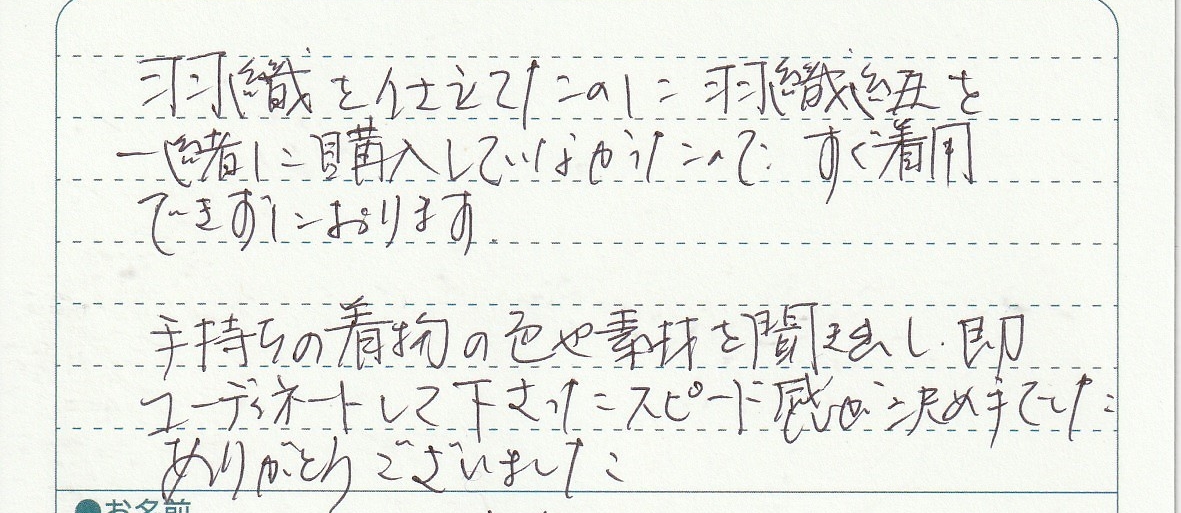 羽織を仕立てたのに羽織紐を
一緒に購入していなかったので、すぐ着用
できずにおります.
手持ちの着物の色や素材を聞き出し、即
コーディネートして下さったスピード感が決め手でした
ありがとうございました
●お名前